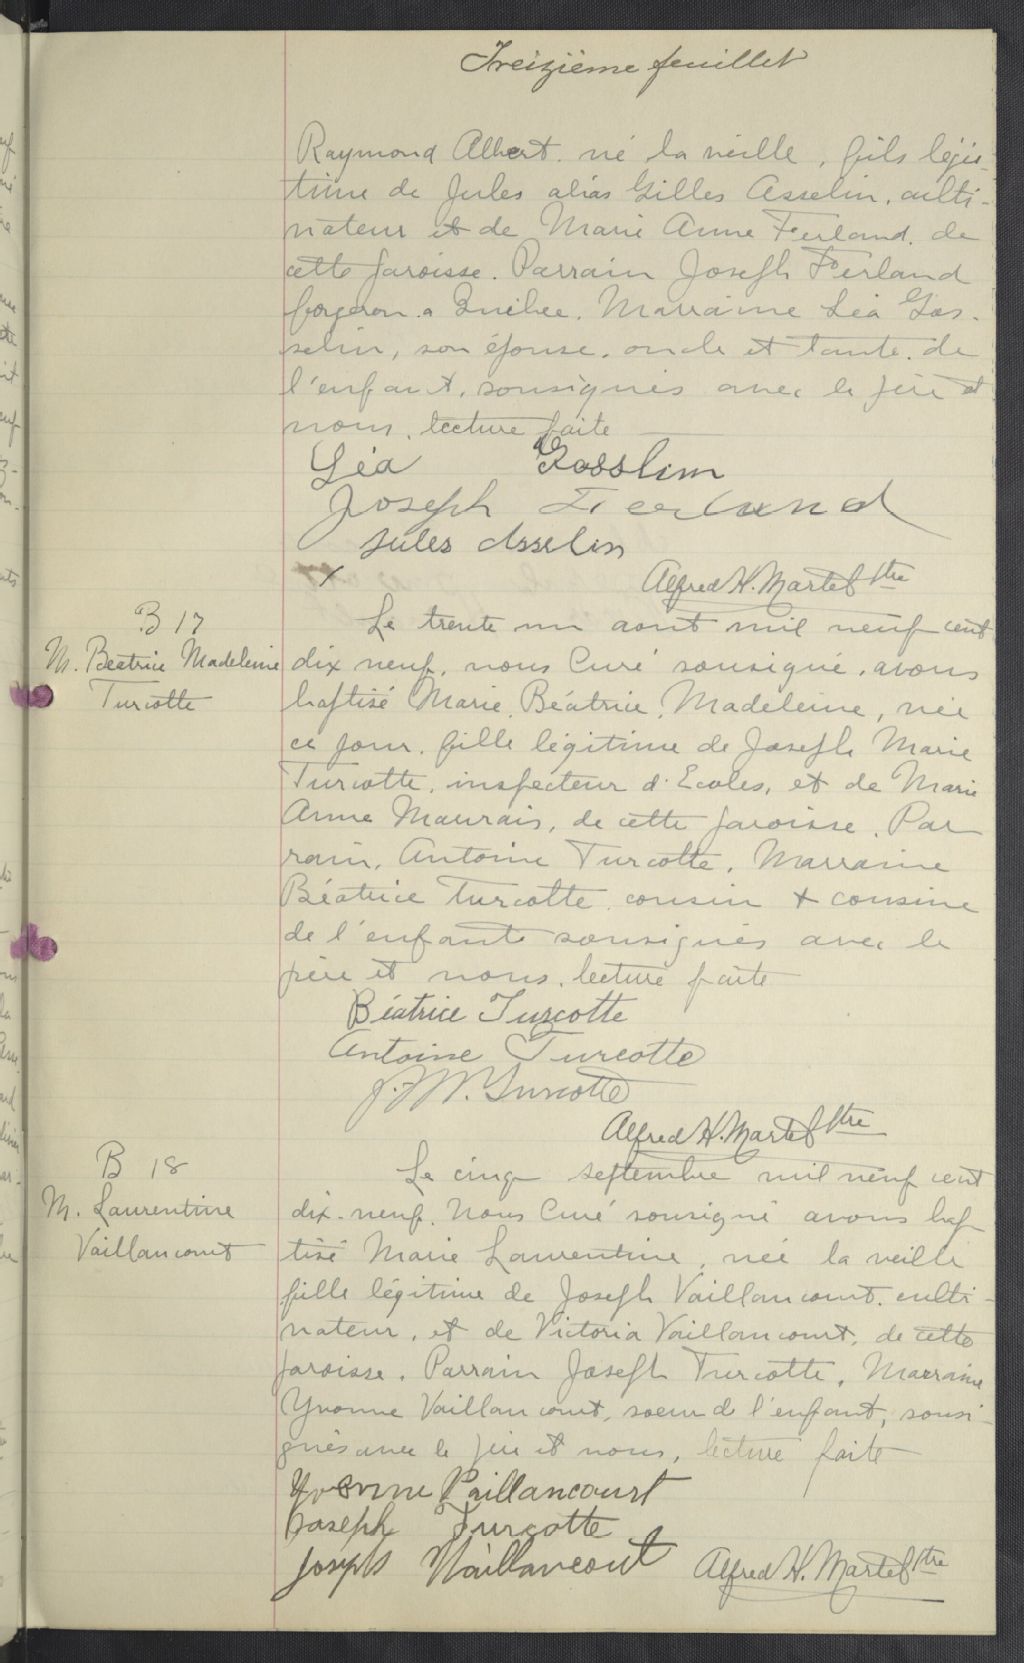 Treizième feuillet
Raymond Albert. né la veille, fils légi-
time de Jules alias Gilles Asselin, culti-
vateur et de Marie Anne Ferland. de
cette paroisse. Parrain Joseph Ferland
forgeron a Québec. Marraine Léa Gos-
selin, son épouse. oncle et tante. de
l'enfant, sousignés avec le père et
nous. lecture faite
Léa Gosslin
Joseph Ferland
Jules Asselin
Alfred H. Martel ptre
B 17
M. Beatrice Madeleine
Turcotte
Le trente un aout mil neuf cent
dix neuf, nous Curé sousigné, avons
baptisé Marie, Béatrice, Madeleine, née
ce jour. fille légitime de Joseph Marie
Turcotte, inspecteur d'Ecoles, et de Marie
Anne Maurais, de cette paroisse. Par
rain, Antoine Turcotte, Marraine
Béatrice Turcotte, cousin + cousine
de l'enfante sousignés avec le
père et nous. lecture faite
Béatrice Turcotte
Antoine Turcotte
J. M. Turcotte
Alfred H. Martel ptre
B 18
M. Laurentine
Vaillancourt
Le cinq septembre mil neuf cent
dix-neuf. Nous Curé sousigné avons bap
tisé Marie Laurentine, née la veille
fille légitime de Joseph Vaillancourt. culti-
vateur, et de Victoria Vaillancourt, de cette
paroisse. Parrain Joseph Turcotte, Marraine
Yvonne Vaillancourt, soeur d l'enfant, sousi-
gnés avec le père et nous, lecture faite
Yvonne Vaillancourt
Joseph Turcotte
Joseph Vaillancout
Alfred H. Martel ptre